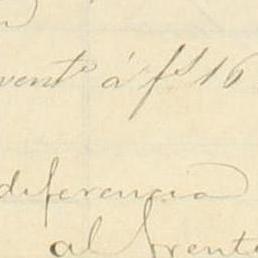 vent.º á f.s 16
diferencia
al frente